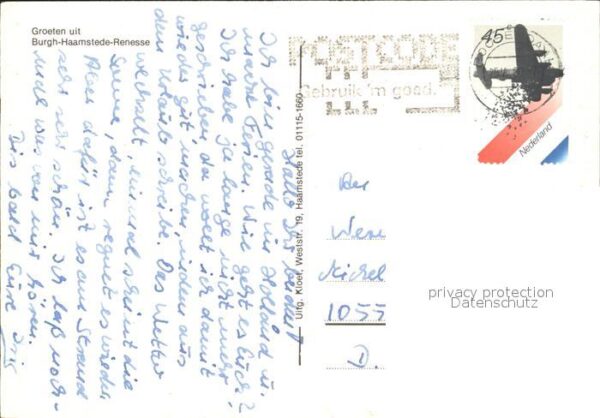 Groeten uit
Burgh-Haamstede-Renesse
Hallo Ihr beiden!
Ich bin gerade in Holland u.
mache Ferien. Wie geht es Euch?
Ich habe ja lange nicht mehr
geschrieben, da wollt ich damit
wieder gut machen, indem aus
dem Urlaub schreibe. Das Wetter
wechselt, mal scheint die
Sonne, dann regnet es wieder
Aber dafür ist es am Strand
sehr sehr schön. Ich laß noch-
mal was von mir hören.
Bis bald Eure Iris
Uitg. Kloet, Weststr. 19, Haamstede tel. 01115-1660
POSTCODE
Gebruik 'm goed.
45
Nederland
1055
D.
privacy protection
Datenschutz